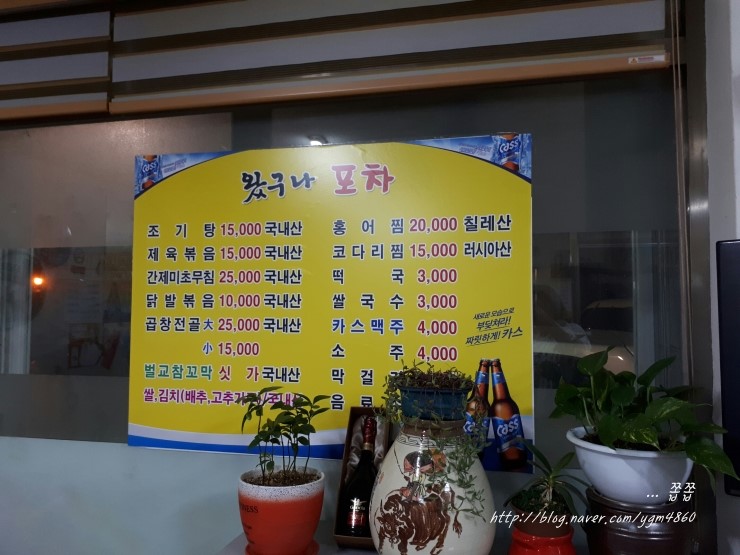 왔구나 포차
조기탕 15,000 국내산
제육볶음 15,000 국내산
간제미초무침 25,000 국내산
닭발볶음 10,000 국내산
곱창전골 大 25,000 국내산
小 15,000
벌교참꼬막 싯가 국내산
쌀,김치(배추,고추가
홍어찜 20,000 칠레산
코다리찜 15,000 러시아산
떡국 3,000
쌀국수 3,000
카스맥주 4,000
소주 4,000
막걸
음료
새로운 모습으로
부딪쳐라!
짜릿하게! 카스
Cass
Cass
Cass
... 쫍쫍
http://blog.naver.com/ygm4860